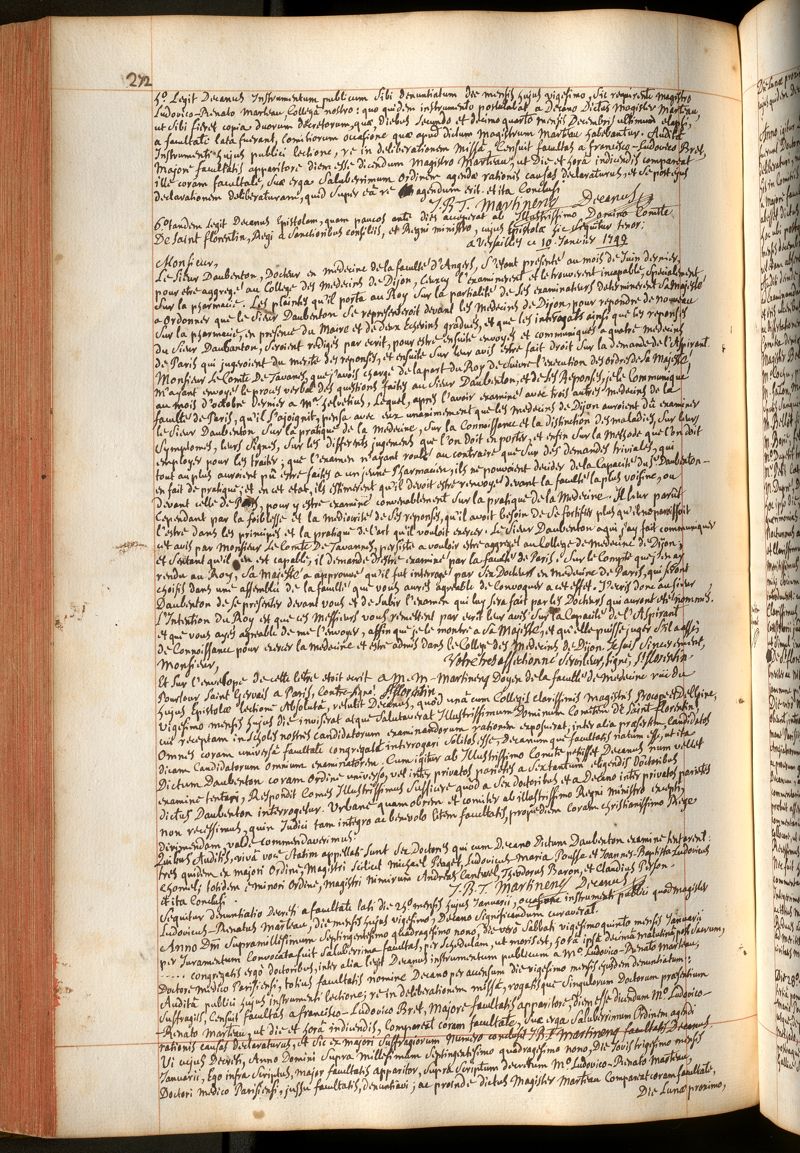 272
5º. Legit Decanus Instrumentum publicum Sibi denuntiatum die mensis hujus vigesimo, Sic requirente Magistro
Ludovico-Renato Marteau Collegâ nostro: quo quidem instrumento postulabat a Decano Dictus Magister Marteau,
ut Sibi fieret copia duorum Decretorum, quæ diebus Secundo et decimo quarto mensis Decembris ultimum elapsi,
a facultate lata fuerant, Comitiorum occasione quæ apud dictum Magistrum Marteau habebantur. Auditâ
Instrumenti hujus publici lectione, re in deliberationem Missâ, Censuit facultas a francisco-Ludovico Bret,
Majore facultatis apparitore diem esse dicendum Magistro Marteau, ut Die et horâ indicendis compareat
ille coram facultate, Suæ erga Saluberrimum Ordinem agendi rationis causas declaraturus, et Se post ejus
declarationem deliberaturam, quid Super eâ re agendum erit. et ita Conclusi.
J. B. T. Martinenq Decanus
6º. tandem Legit Decanus Epistolam, quam paucos ante dies acceperat ab Illustrissimo Domino Comite
De Saint florentin, Regi a Sanctioribus consiliis, et Regni ministro, cujus Epistolæ sic sequitur tenor:
a Versailles ce 10. Janvier 1749
Monsieur,
Le Sieur Daubenton, Docteur en médecine de la faculté d'Angers, S'étant présenté au mois de Juin dernier,
pour être aggregé au College des Medecins de Dijon, ceux cy l'examinerent et le trouverent incapable, Specialement
Sur la pharmacie. Les plaintes qu'il porta au Roy Sur la partialité de Ses examinateurs determinerent Sa Majesté
a Ordonner que le Sieur Daubenton Se representeroit devant les Medecins de Dijon, pour repondre de nouveau
Sur la pharmacie, en presence du Maire et de deux Echevins gradués, et que les interogats ainsi que les reponses
du Sieur Daubanton, Seroient redigés par ecrit, pour etre ensuite envoyés et communiqués a quatre medecins
de Paris qui jugeroient du merite des reponses, et ensuite Sur leur avis etre fait droit Sur la demande de l'Aspirant.
Monsieur Le Comte De Tavanes, que j'avois chargé de la part du Roy de Suivre l'execution des ordres de Sa Majesté
m'ayant envoyé le procès verbal des questions faites au Sieur Daubenton, et de Ses Reponses, je le Communiquai
au mois d'octobre dernier a Mr. helvetius, Lequel, aprés l'avoir examiné avec trois autres Medecins de la
faculté de Paris, qu'il S'ajoignit, pensa avec eux unanimement que les Medecins de Dijon auroient dû examiner
le Sieur Daubenton Sur la pratique de la Medecine, Sur la Connoissance et la distinction des maladies, Sur leurs
Symptomes, leurs Signes, Sur les differents jugements que l'on Doit en porter, et enfin Sur la Methode que l'on doit
employer pour les traiter; que l'examen n'ayant roulé au contraire que Sur des demandes triviales, qui
tout au plus auroient pû etre faites a un jeune Pharmacien, ils ne pouvoient decider de la Capacité du Sr. Daubenton
en fait de pratique; et en cet etat, ils estimerent qu'il devoit etre renvoyé devant la faculté la plus voisine, ou
devant celle de Paris, pour y etre examiné convenablement Sur la pratique de la Medecine. Il leur parut
cependant par la foiblesse et la mediocrité de Ses reponses, qu'il avoit besoin de Se fortifier plus qu'il ne paroissoit
l'etre dans les principes et la pratique de l'art qu'il vouloit exercer. Le Sieur Daubenton a qui j'ay fait communiquer
cet avis par Monsieur Le Comte De Tavannes, persiste a vouloir etre aggregé au College de Medecine de Dijon;
et Sentant qu'il en est capable, il demande d'etre examiné par la faculté de Paris. Sur le Compte que j'en ay
rendu au Roy, Sa Majesté a approuvé qu'il fut interrogé par Six Docteurs en Medecine de Paris, qui Seront
choisis dans une assemblée de la faculté que vous aurés agreable de Convoquer a cet effet. J'ecris donc au Sieur
Daubenton de Se presenter devant vous et de Subir l'examen qui luy Sera fait par les Docteurs qui auront eté nommés.
L'Intention du Roy est que ces Messieurs vous remettent par ecrit leur avis Sur la Capacité de l'Aspirant
et que vous ayés agreable de me l'envoyer, affin que je le montre a Sa Majesté, et qu'elle puisse juger S'il a assés
de Connoissance pour exercer la Medecine et etre admis dans le College des Medecins de Dijon. Je Suis Sincerement,
Monsieur, Votre tres affectionné Serviteur, Signé, St. florentin.
Et Sur l'envelope de cette lettre etoit ecrit a M. M. Martinenq Doyen de la faculté de medecine ruë du
Pourtour Saint Gervais a Paris, Contresigné, St florentin
hujus Epistolæ lectione Absoluta, retulit Decanus, quod unâ cum Collegis clarissimis magistris Procope et De l'Epine,
vigesimo mensis hujus die inviserat atque Salutaverat Illustrissimum Dominum Comitem De Saint Florentin,
cui receptam in Scholis nostris candidatorum examinandorum rationem exposuerat, inter alia præsertim Candidatos
Omnes coram universâ facultate congregatâ interrogari Solitos esse, Decanumque facultatis natum esse, ut ita
dicam Candidatorum omnium examinatorem. Cum igitur ab Illustrissimo Comite petiisset Decanus num vellet
Dictum Daubenton coram Ordine universo, vel inter privatos parietes a Sex tantum eligendis Doctoribus
examine tentari, Respondit Comes Illustrissimus Sufficere quod a Sex Doctoribus et a Decano inter privatos parietes
dictus Daubenton interrogetur. Urbane quamobrem et comiter ab illustrissimo Regni ministro excepti,
non recessimus, quin Judici tam integro ac benevolo litem facultatis, propediem coram christianissimo Rege
Dirimendam, valde commendaverimus.
Quibus Auditis, vivâ voce Statim appellati Sunt Sex Doctores qui cum Decano Dictum Daubenton examine tentarent:
tres quidem ex majori Ordine, Magistri Scilicet Michael Peaget, Ludovicus-Maria Pousse et Joannes-Baptista Ludovicus
Chomel; totidem e minori Ordine, magistri nimirum Andreas Cantwel, Theodorus Baron, et Claudius Person.
et ita Conclusi. J. B. T. Martinenq Decanus
Sequitur denuntiatio Decreti a facultate lati die 25º mensis hujus Januarii, occasione instrumenti publici quod magister
Ludovicus-Renatus Marteau, die mensis hujus vigesimo, Decano Significandum curaverat.
Anno Dñi Supra millesimum Septingentesimo quadragesimo nono, die vero Sabbati vigesimo quinto mensis Januarii
per Juramentum Convocata fuit Saluberrima facultas, per Schedulam, ut moris est, horâ ipsâ decimâ matutinâ post Sacrum,
..... congregatis ergò Doctoribus, inter alia legit Decanus instrumentum publicum a Mº. Ludovico-Renato Marteau,
Doctore Medico Parisiensi, totius facultatis nomine Decano per acensum die vigesimo mensis ejusdem denuntiatum:
Auditâ publici hujus instrumenti lectione, re in deliberationem missâ, rogatisque Singulorum Doctorum præsentium
Suffragiis, Censuit facultas a francisco-Ludovico Bret, Majore facultatis apparitore, diem esse dicendum Mº. Ludovico-
-Renato Marteau, ut die et horâ indicendis, Compareat coram facultate, Suæ erga Saluberrimum Ordinem agendi
rationis causas declaraturus, et Sic ex majori Suffragiorum numero conclusit J. B. T. Martinenq facultatis Decanus
Vi cujus Decreti, Anno Domini Supra Millesimum Septingentesimo quadragesimo nono, Die Jovis trigesimo mensis
Januarii, Ego infra Scriptus, major facultatis apparitor, Supra Scriptum decretum Mº. Ludovico-Renato Marteau,
Doctori medico Parisiensi, jussu facultatis, denuntiavi; ac proinde dictus Magister Marteau Compareat coram facultate,
Die Lunæ proximo,